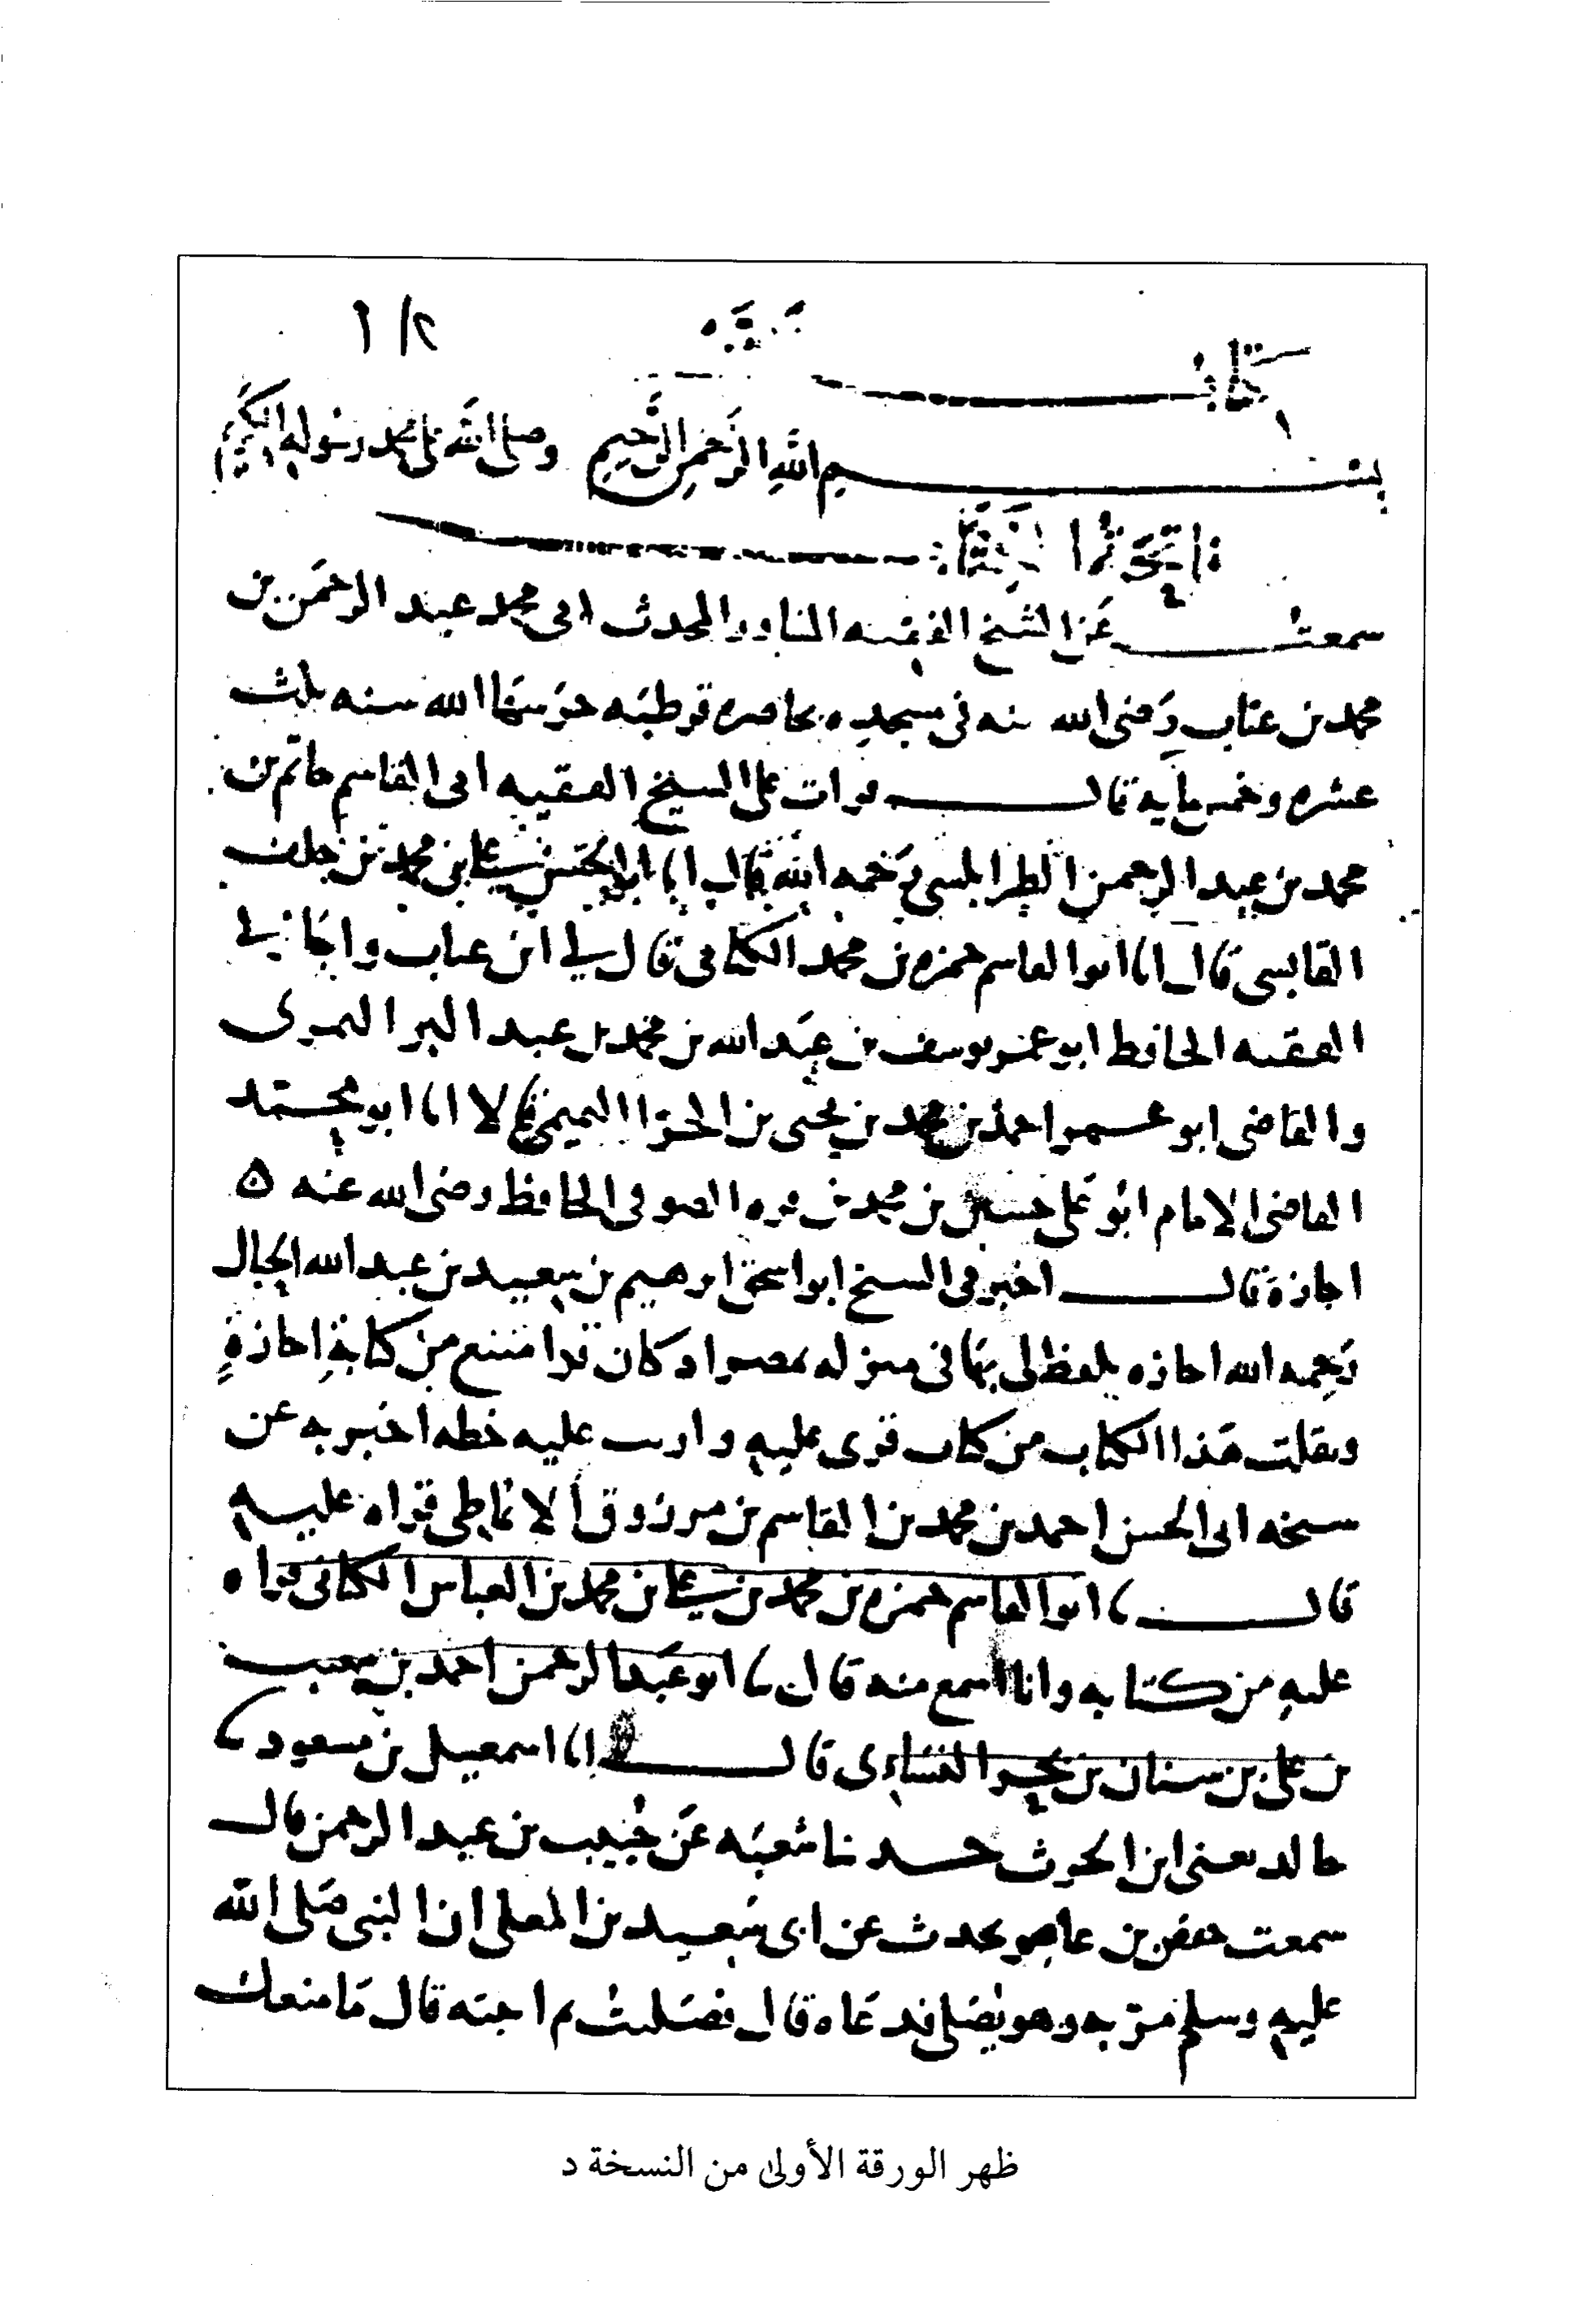 ١/٢
كتاب
بسم الله الرحمن الرحيم وصلى الله على محمد رسوله الكريم
سمعت عن الشيخ الفقيه المحدث ابى محمد عبد الرحمن بن
محمد بن عتاب رضى الله عنه فى مسجده بحاضره قرطبه حرسها الله سنه ثلث
عشره وخمس مايه قال قرات على الشيخ الفقيه ابى القاسم حاتم بن
محمد بن عبد الرحمن الطرابلسى رحمه الله قال انا ابو الحسن على بن محمد بن خلف
القابسى قال انا ابو القاسم حمزه بن محمد الكنانى قال لى ابن عتاب واجازنى
الفقيه الحافظ ابو عمر يوسف بن عبد الله بن محمد بن عبد البر النمرى
والقاضى ابو عمر احمد بن محمد بن يحيى بن الحذا التميمى قالا انا ابو محمد
القاضى الامام ابو على حسين بن محمد بن فيره الصدفى الحافظ رضى الله عنه ٥
اجازة قال اخبرنى الشيخ ابو اسحق ابرهيم بن سعيد بن عبد الله الحبال
رحمه الله اجازه بلفظ لى بها فى منزله بمصر اذ كان قد امتنع من كتابة اجازةٍ
ونقلت هذا الكتاب من كتاب قرى عليه وارىت عليه خطه اخبر به عن
شيخه ابى الحسن احمد بن محمد بن القاسم بن مرزوق الانماطى قراه عليه
قال نا ابو القاسم حمزه بن محمد بن على بن محمد بن العباس الكنانى قراه
عليه من كتابه وانا اسمع منه قال نا ابو عبد الرحمن احمد بن شعيب
بن على بن سنان بن بحر النساءى قال انا اسمعيل بن مسعود نا
خالد يعنى ابن الحرث حدثنا شعبه عن خبيب بن عبد الرحمن قال
سمعت حفص بن عاصم يحدث عن ابى سعيد بن المعلى ان النبى صلى الله
عليه وسلم مر به وهو يصلى فدعاه قال فصليت ثم اجيته قال ما منعك
ظهر الورقة الأولى من النسخة د